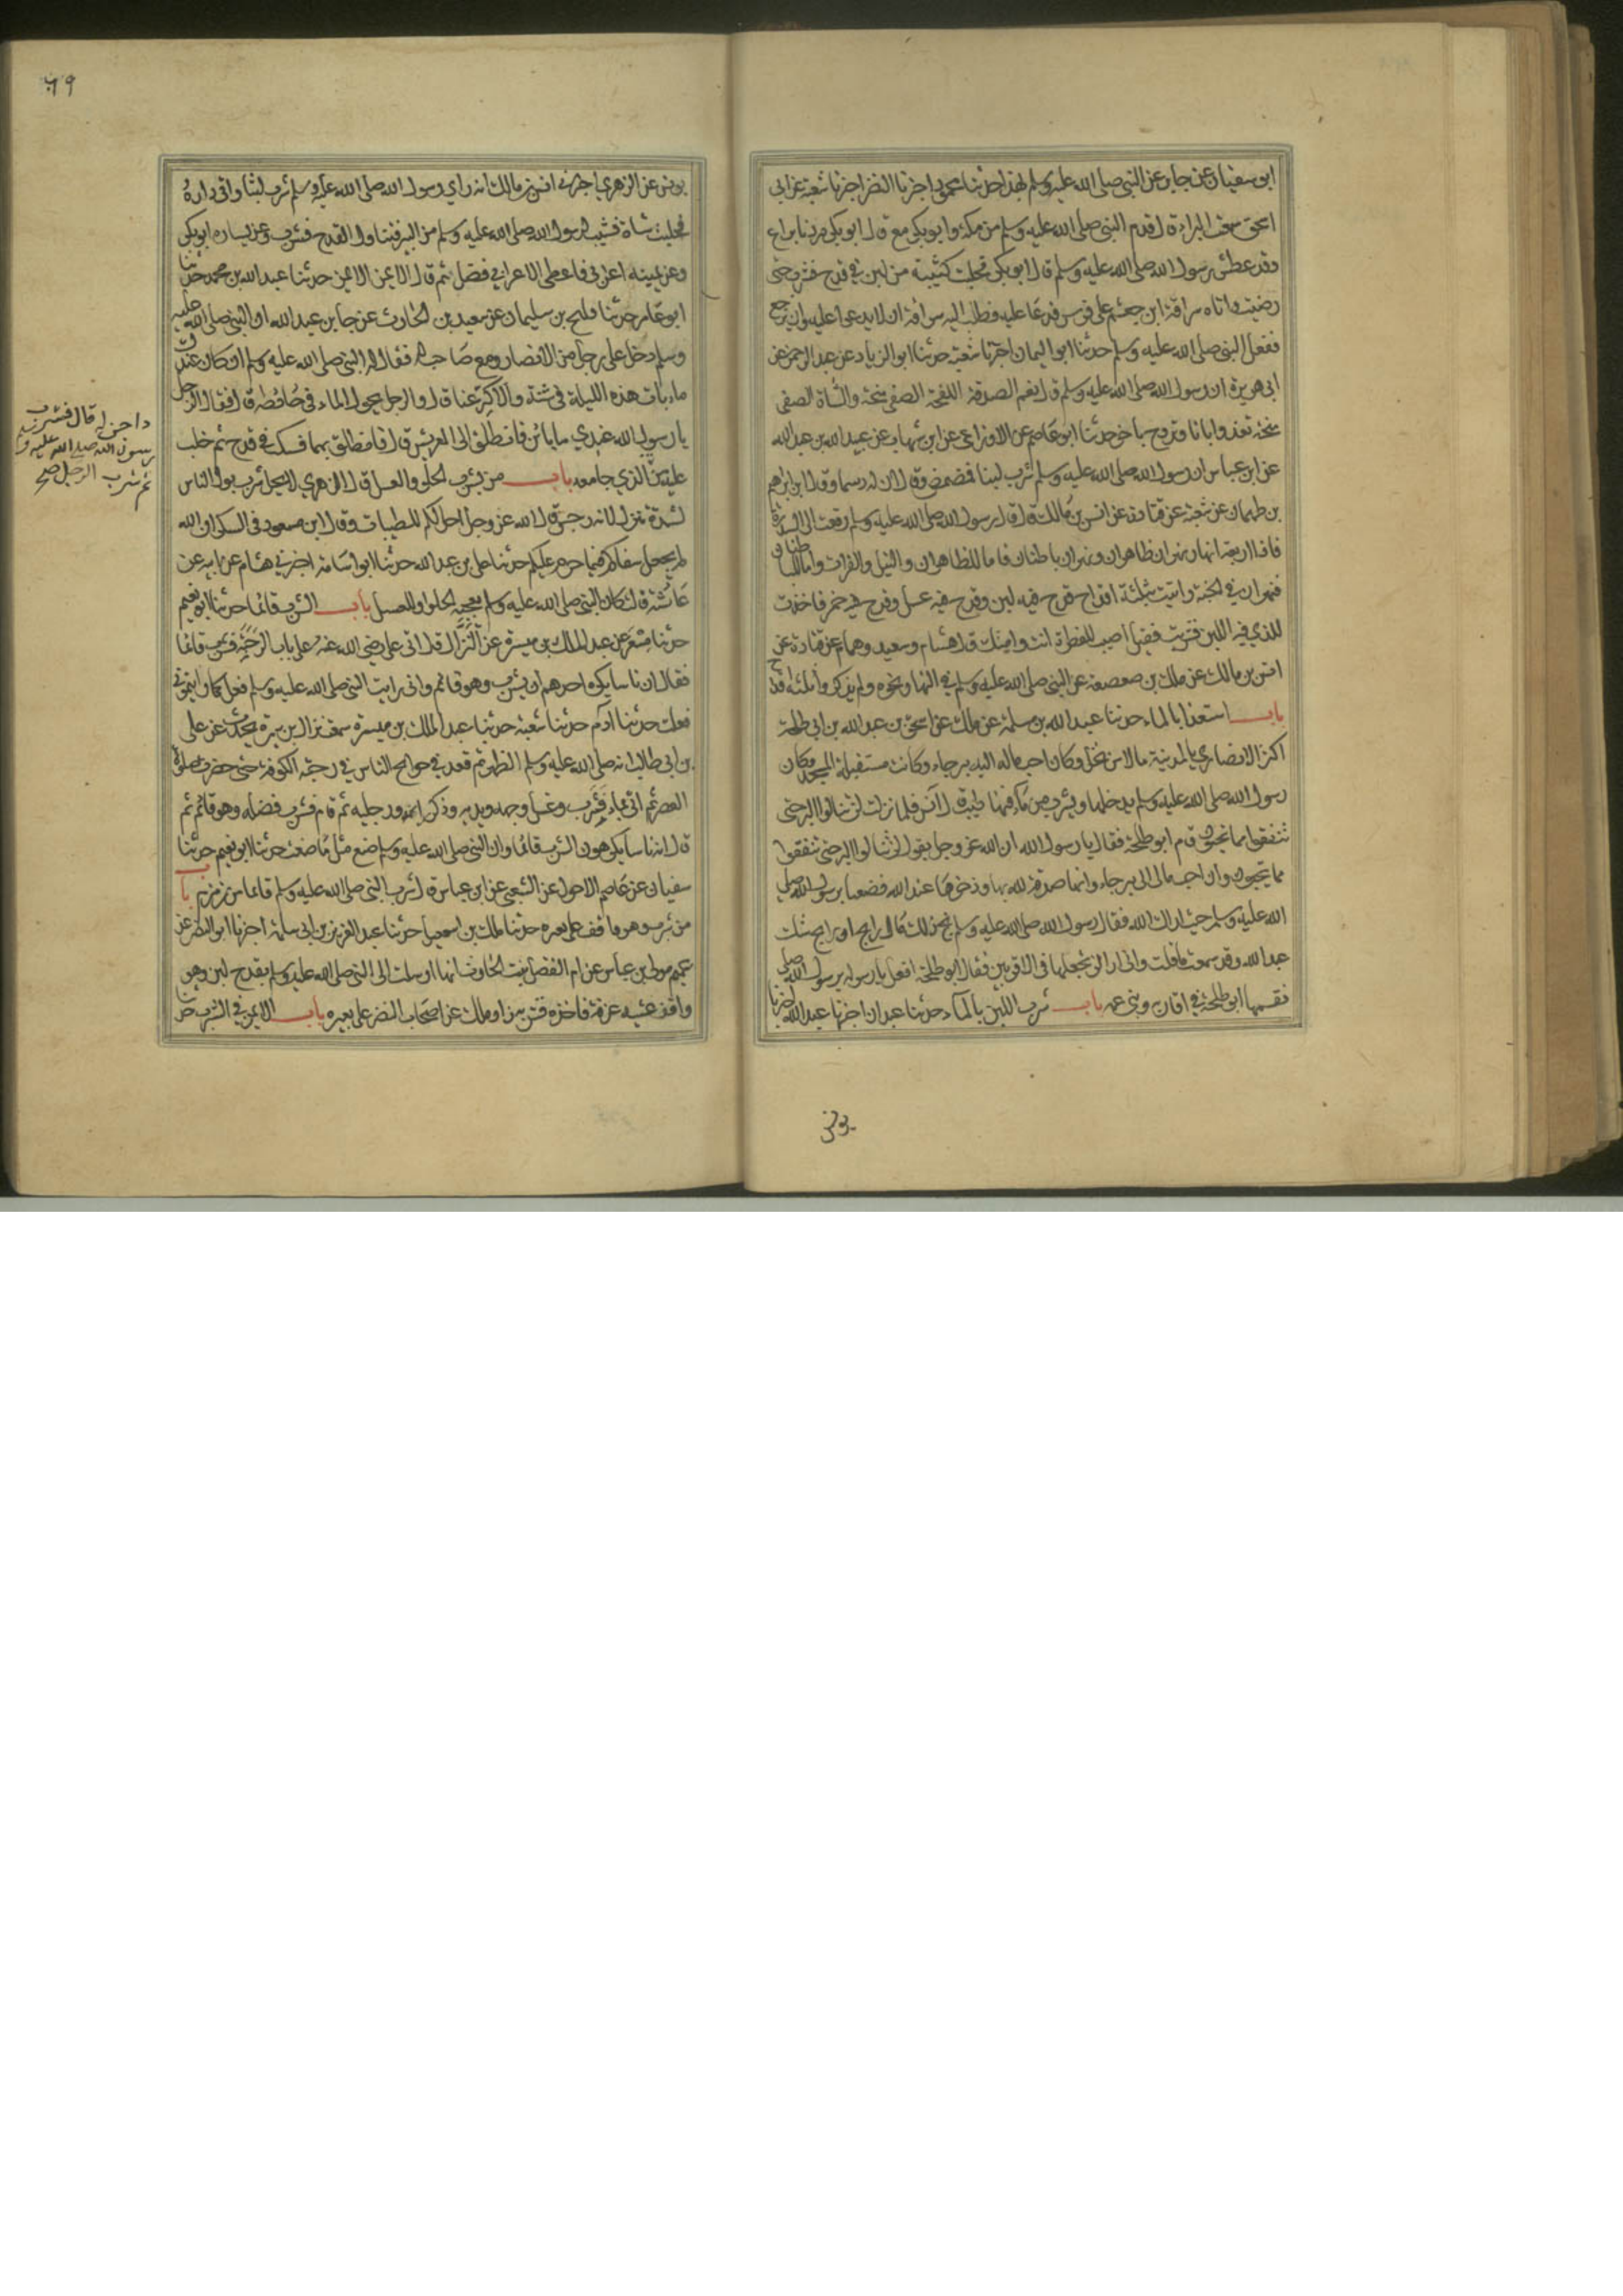 ابو سفيان عن جابر عن النبي صلى الله عليه وسلم بهذا حدثنا محمود اخبرنا النضر اخبرنا شعبة عن ابي
اسحق سمعت البراء قال قدم النبي صلى الله عليه وسلم من مكة وابو بكر معه قال ابو بكر مررنا براع
وقد عطش رسول الله صلى الله عليه وسلم قال ابو بكر فحلبت كثيبة من لبن في قدح فشرب حتى
رضيت واتاه سراقة ابن جعشم على فرس فدعا عليه فطلب اليه سراقة ان لا يدعو عليه وان يرجع
ففعل النبي صلى الله عليه وسلم حدثنا ابو اليمان اخبرنا شعبة حدثنا ابو الزناد عن عبد الرحمن عن
ابي هريرة ان رسول الله صلى الله عليه وسلم قال نعم الصدقة اللقحة الصفي منحة والشاة الصفي
منحة تغدو باناء وتروح باخر حدثنا ابو عاصم عن الاوزاعي عن ابن شهاب عن عبيد الله بن عبد الله
عن ابن عباس ان رسول الله صلى الله عليه وسلم شرب لبنا فمضمض وقال ان له دسما وقال ابراهيم
بن طهمان عن شعبة عن قتادة عن انس بن مالك قال قال رسول الله صلى الله عليه وسلم رفعت الى السدرة
فاذا اربعة انهار نهران ظاهران ونهران باطنان فاما الظاهران والنيل والفرات واما الباطنان
فنهران في الجنة واتيت بثلثة اقداح قدح فيه لبن وقدح فيه عسل وقدح فيه خمر فاخذت
الذي فيه اللبن فشربت فقيل اصبت الفطرة انت وامتك قال هشام وسعيد وهمام عن قتادة عن
انس بن مالك عن ملك بن صعصعة عن النبي صلى الله عليه وسلم في الانهار ونحوه ولم يذكروا ثلثة اقداح
باب استعذاب الماء حدثنا عبد الله بن مسلمة عن ملك عن اسحق بن عبد الله بن ابي طلحة
اكثر الانصاري بالمدينة مالا من نخل وكان احب ماله اليه بيرحاء وكانت مستقبلة المسجد وكان
رسول الله صلى الله عليه وسلم يدخلها ويشرب من ماء فيها طيب قال انس فلما نزلت لن تنالوا البر حتى
تنفقوا مما تحبون قام ابو طلحة فقال يا رسول الله ان الله عز وجل يقول لن تنالوا البر حتى تنفقوا
مما تحبون وان احب مالي الي بيرحاء وانها صدقة لله ارجو برها وذخرها عند الله فضعها يا رسول الله صلى
الله عليه وسلم حيث اراك الله فقال رسول الله صلى الله عليه وسلم بخ ذلك مال رابح او رايح شك
عبد الله وقد سمعت ما قلت واني ارى ان تجعلها في الاقربين فقال ابو طلحة افعل يا رسول الله
فقسمها ابو طلحة في اقاربه وبني عمه باب شرب اللبن بالماء حدثنا عبدان اخبرنا عبد الله اخبرنا
يونس
٦٩
يونس عن الزهري اخبرني انس بن مالك انه راي رسول الله صلى الله عليه وسلم شرب لبنا واتى داره
فحلبت شاة فشيب لرسول الله صلى الله عليه وسلم من البير فتناول القدح فشرب وعن يساره ابو بكر
وعن يمينه اعرابي فاعطى الاعرابي فضله ثم قال الايمن الايمن حدثنا عبد الله بن محمد حدثنا
ابو عامر حدثنا فليح بن سليمان عن سعيد بن الحارث عن جابر بن عبد الله ان النبي صلى الله عليه
وسلم دخل على رجل من الانصار ومعه صاحب له فقال له النبي صلى الله عليه وسلم ان كان عندك
ماء بات هذه الليلة في شنة والا كرعنا قال والرجل يحول الماء في حائطه قال فقال الرجل
يا رسول الله عندي ماء بائت فانطلق الى العريش قال فانطلق بهما فسكب في قدح ثم حلب
عليه من الذي جا معه باب من شرب الحلو والعسل قال الزهري لا يحل شرب بول الناس
لشدة تنزل لانه رجس قال الله عز وجل احل لكم الطيبات وقال ابن مسعود في السكر ان الله
لم يجعل شفاكم فيما حرم عليكم حدثنا علي بن عبد الله حدثنا ابو اسامة اخبرني هشام عن ابيه عن
عائشة قالت كان النبي صلى الله عليه وسلم يعجبه الحلوا والعسل باب الشرب قائما حدثنا ابو نعيم
حدثنا مسعر عن عبد الملك بن ميسرة عن النزال قال اتى علي رضي الله عنه على باب الرحبة فشرب قائما
فقال ان ناسا يكره احدهم ان يشرب وهو قائم واني رايت النبي صلى الله عليه وسلم فعل كما رايتموني
فعلت حدثنا آدم حدثنا شعبة حدثنا عبد الملك بن ميسرة سمعت نزال بن سبرة يحدث عن علي
بن ابي طالب انه صلى الله عليه وسلم الظهر ثم قعد في حوائج الناس في رحبة الكوفة حتى حضرت صلوة
العصر ثم اتي بماء فشرب وغسل وجهه ويديه وذكر راسه ورجليه ثم قام فشرب فضله وهو قائم ثم
قال ان ناسا يكرهون الشرب قائما وان النبي صلى الله عليه وسلم صنع مثل ما صنعت حدثنا ابو نعيم حدثنا
سفيان عن عاصم الاحول عن الشعبي عن ابن عباس قال شرب النبي صلى الله عليه وسلم قائما من زمزم باب
من شرب وهو واقف على بعيره حدثنا ملك بن اسمعيل حدثنا عبد العزيز بن ابي سلمة اخبرنا ابو النضر عن
عمير مولى بن عباس عن ام الفضل بنت الحارث انها ارسلت الى النبي صلى الله عليه وسلم بقدح لبن وهو
واقف عشية عرفة فاخذه فشربه زاد ملك عن اصحاب النضر على بعيره باب الايمن في الشرب
داجن له قال فشرب
رسول الله صلى الله عليه وسلم
ثم شرب الرجل صح